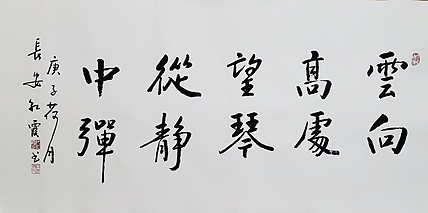 雲向
高處
望琴
從靜
中彈
庚子荷月
長安紅霞書